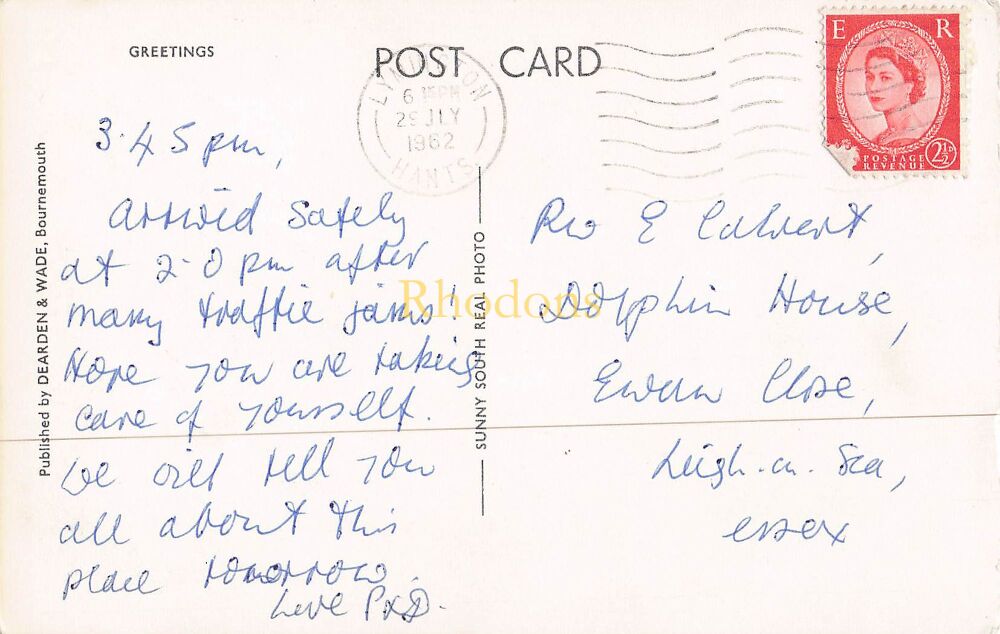 GREETINGS
POST CARD
LYMINGTON
6 15PM
29 JLY
1962
HANTS
E R
POSTAGE
REVENUE
2½D
3.45pm,
arrived safely
at 2-0pm after
many traffic jams!
Hope you are taking
care of yourself.
We will tell you
all about this
place tomorrow.
Love P x D.
Published by DEARDEN & WADE, Bournemouth
SUNNY SOUTH REAL PHOTO
Rev E Calvert,
Dolphin House,
Ewan Close,
Leigh-on-Sea,
essex
Rhodons